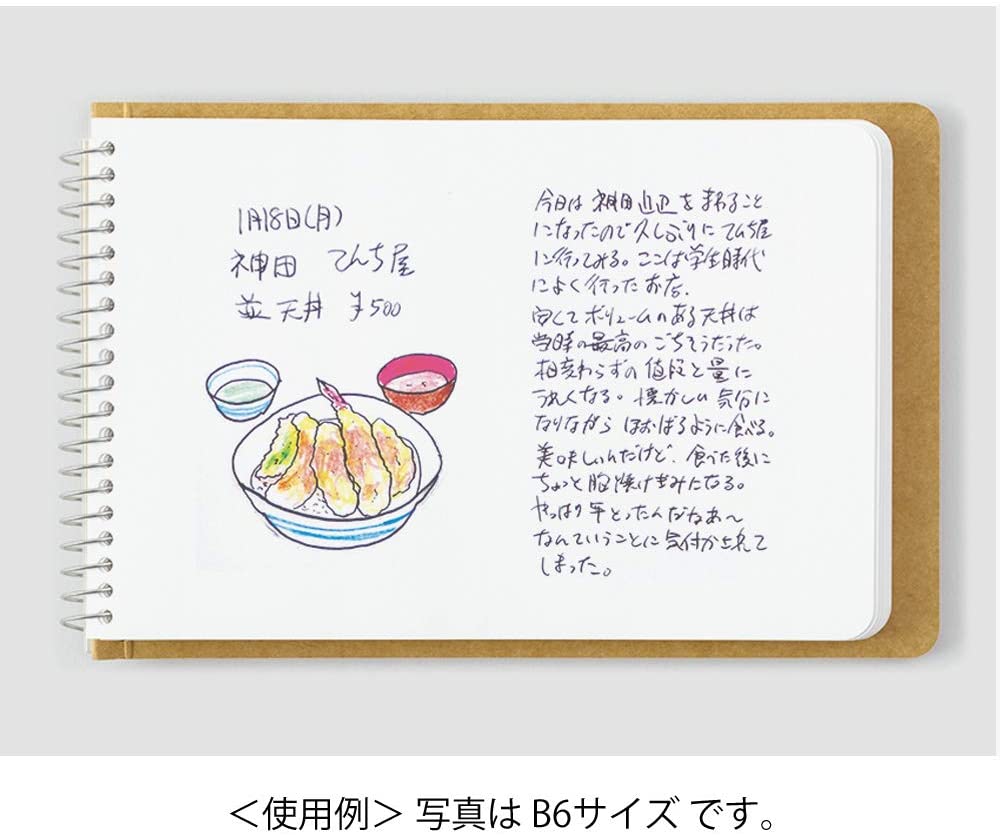 1月18日(月)
神田 てんち屋
並 天丼 ¥500
今日は 神田 辺を まわること
になったので久しぶりに てんち屋
に行ってみる。ここは学生時代
によく行った お店.
安くて ボリュームのある 天丼は
当時の最高の ごちそうだった。
相変わらずの 値段と量に
うれしくなる。懐かしい 気分に
なりながら ほおばるように食べる。
美味しいんだけど、食べた後に
ちょっと胸焼けぎみになる。
やっぱり 年とったんだなあ〜
なんていうことに 気付かされて
しまった。
＜使用例＞ 写真は B6サイズ です。